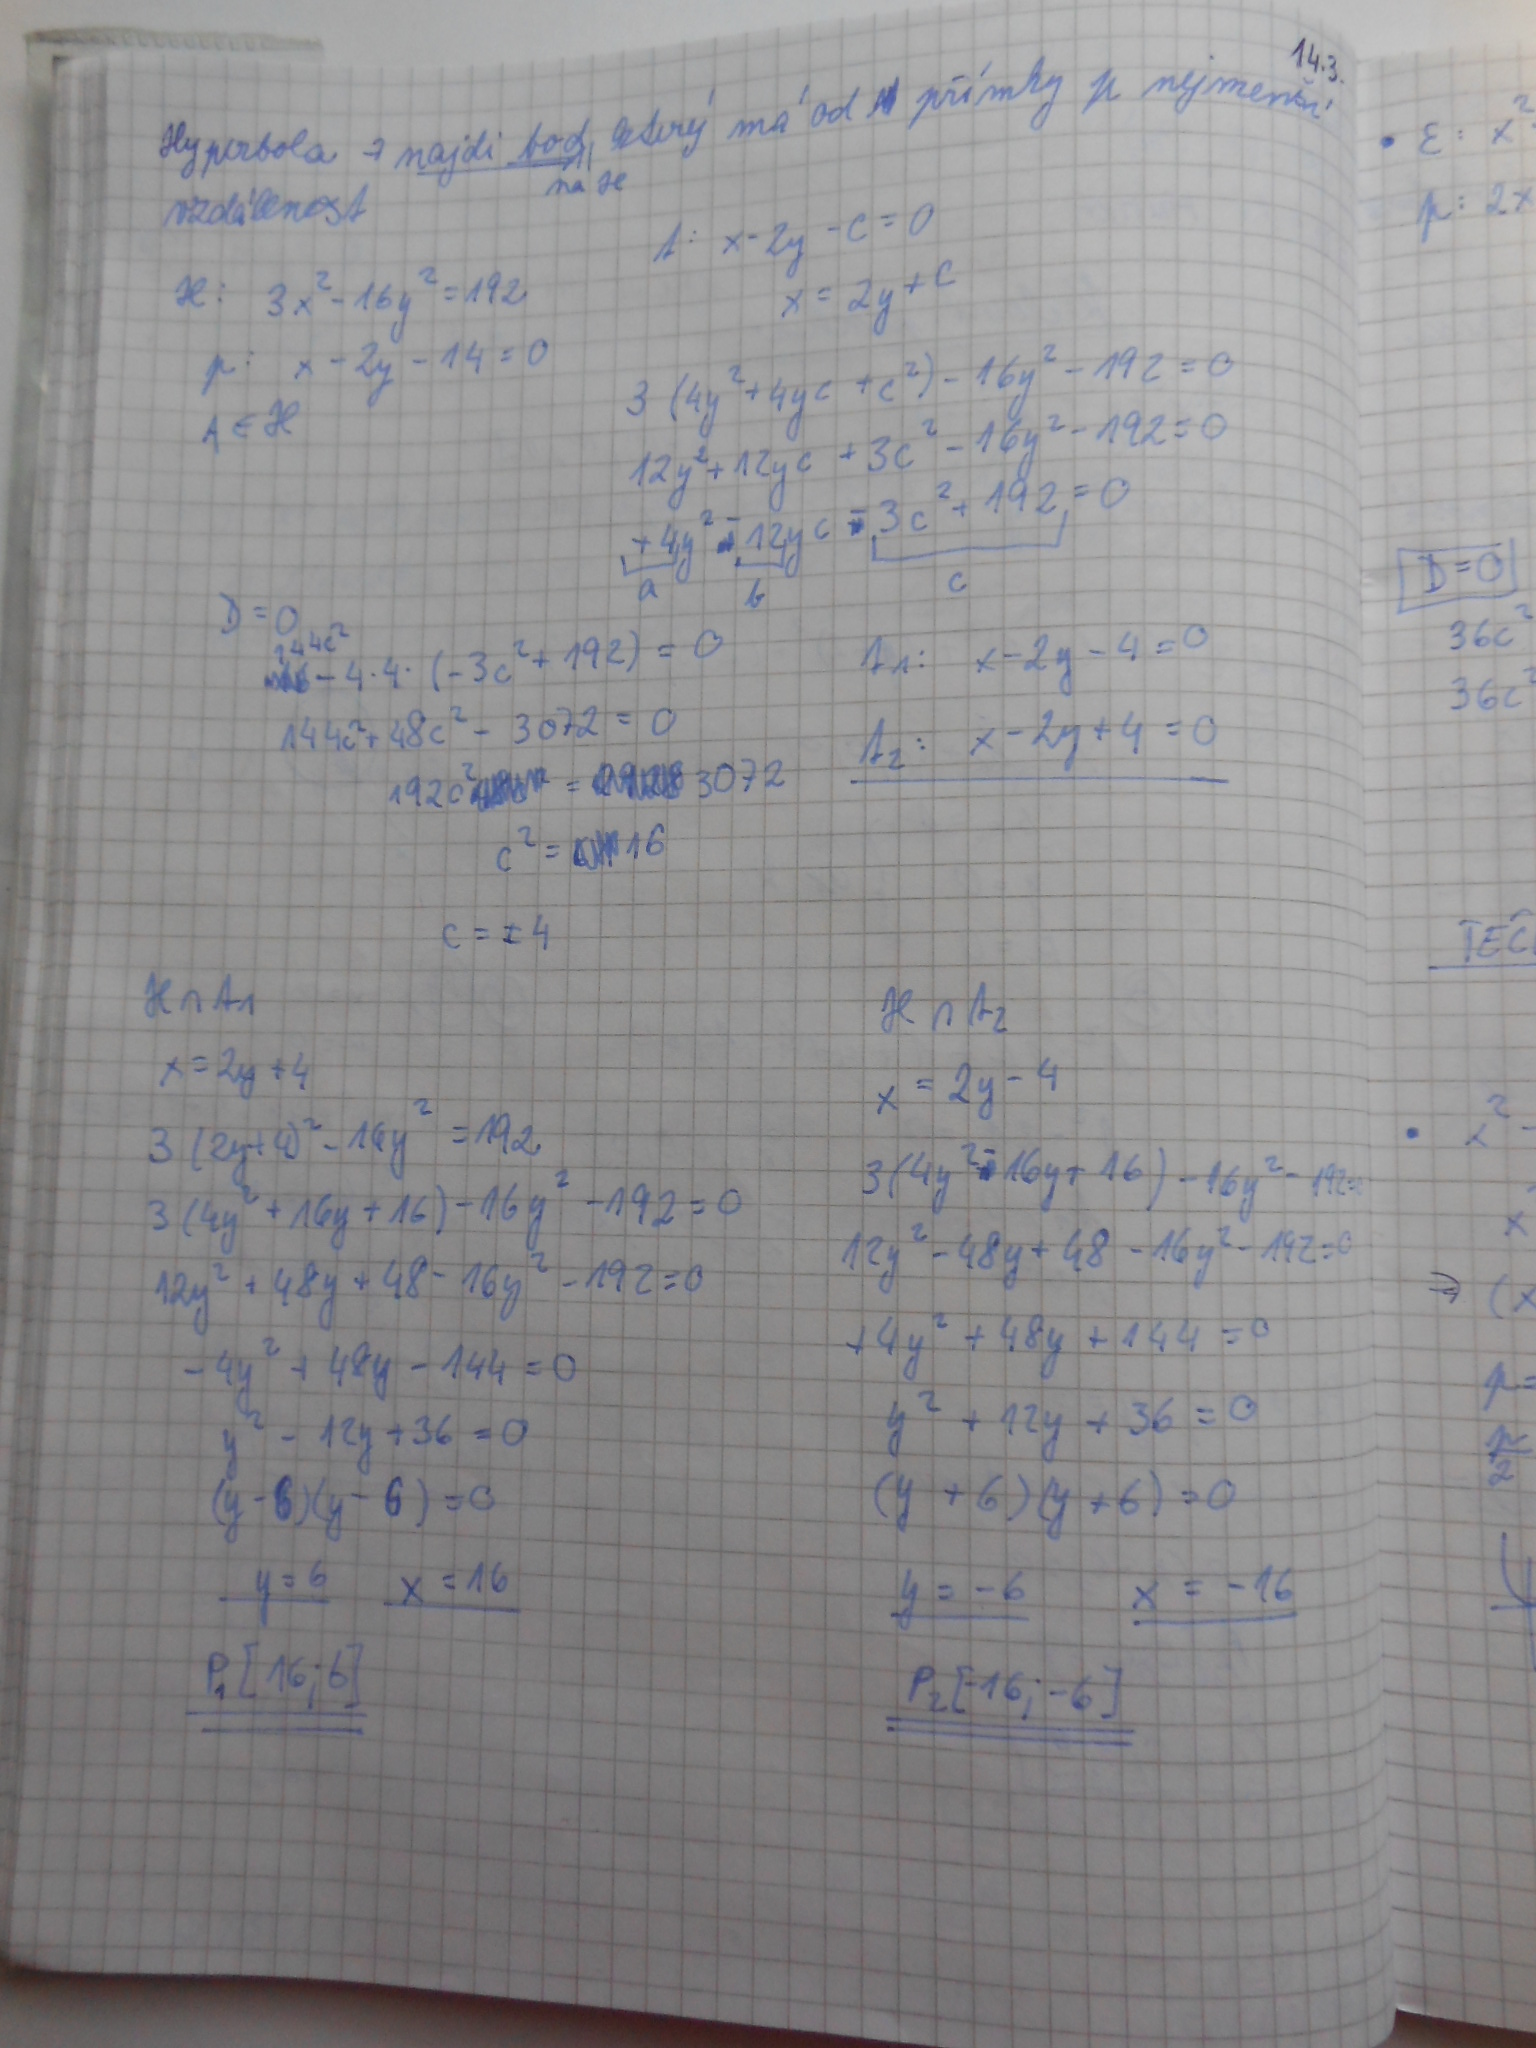 14.3.
Hyperbola → najdi bod, který má od přímky p nejmenší
na H
vzdálenost
t: x - 2y - c = 0
x = 2y + c
H: 3x² - 16y² = 192
p: x - 2y - 14 = 0
A ∈ H
3 (4y² + 4yc + c²) - 16y² - 192 = 0
12y² + 12yc + 3c² - 16y² - 192 = 0
+4y² - 12yc - 3c² + 192 = 0
a b c
D = 0
144c² - 4·4·(-3c² + 192) = 0
144c² + 48c² - 3072 = 0
192c² = 3072
c² = 16
c = ±4
t₁: x - 2y - 4 = 0
t₂: x - 2y + 4 = 0
H ∩ t₁
x = 2y + 4
3 (2y+4)² - 16y² = 192
3 (4y² + 16y + 16) - 16y² - 192 = 0
12y² + 48y + 48 - 16y² - 192 = 0
-4y² + 48y - 144 = 0
y² - 12y + 36 = 0
(y - 6)(y - 6) = 0
y = 6 x = 16
P₁[16; 6]
H ∩ t₂
x = 2y - 4
3(4y² - 16y + 16) - 16y² - 192=
12y² - 48y + 48 - 16y² - 192 = 0
+4y² + 48y + 144 = 0
y² + 12y + 36 = 0
(y + 6)(y + 6) = 0
y = -6 x = -16
P₂[-16; -6]
• E: x²
p: 2x
D = 0
36c²
36c²
TEČ
• x² -
x²
⇒ (x
p =
p/2